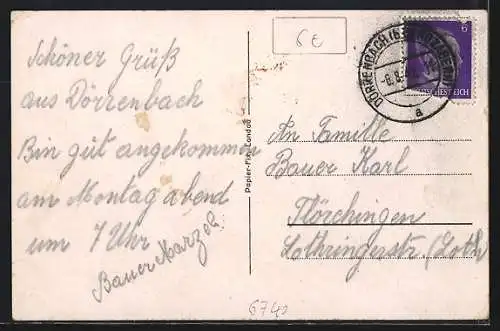 Schöner Grüß
aus Dörrenbach
Bin gut angekommen
am Montag abend
um 7 Uhr
Bauer Marzel
Papier-Fix, Landau
6 €
DÖRRENBACH
a
6
An Familie
Bauer Karl
Flörchingen
Lothringerstr (Loth
6740